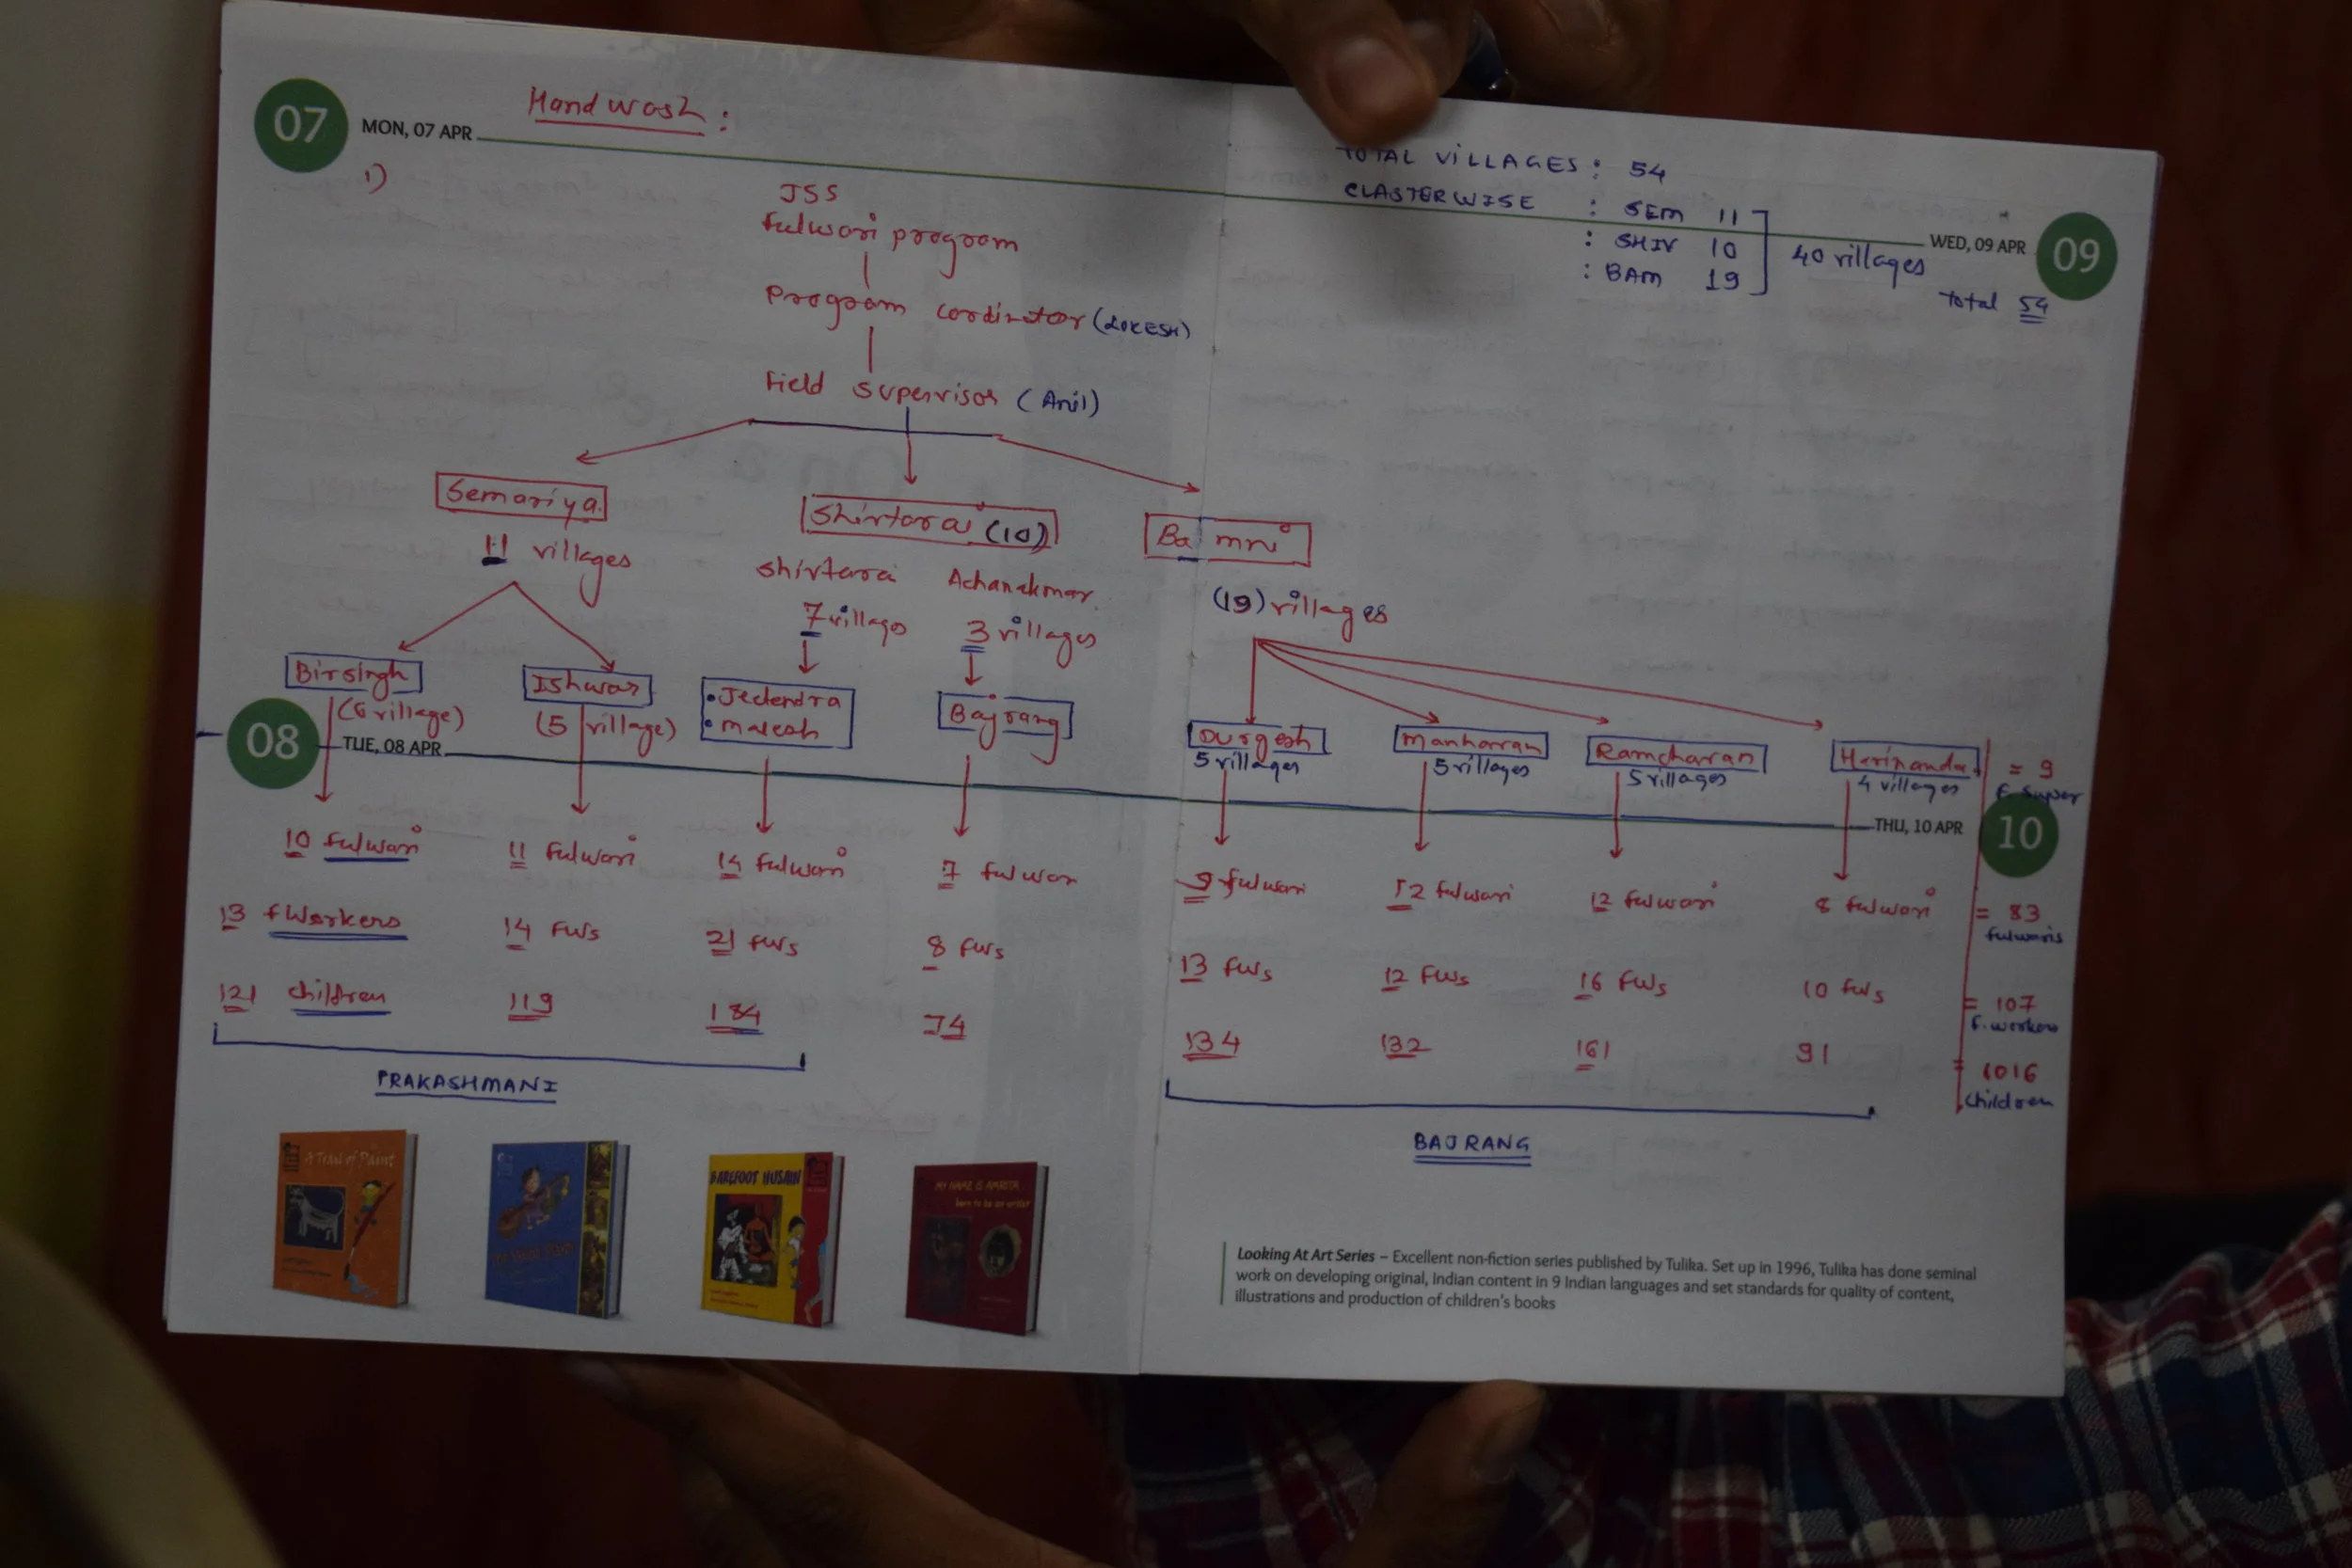 07
MON, 07 APR
Handwash:
1)
JSS
fulwari program
Program cordinator (LOKESH)
Field supervisor (Anil)
Semariya
11 villages
Shivtarai (10)
Shivtarai
7 villags
Achanakmar
3 villages
Bamni
(19) villages
TOTAL VILLAGES : 54
CLASTERWISE : SEM 11
: SHIV 10
: BAM 19
40 villages
Total 54
WED, 09 APR
09
Birsingh
(6 village)
Ishwar
(5 village)
• Jeetendra
• Mahesh
Bajrang
Durgesh
5 villages
Manharan
5 villages
Ramcharan
5 villages
Harinanda
4 villages
= 9
F. Super
08
TUE, 08 APR
THU, 10 APR
10
10 fulwari
11 fulwari
14 fulwari
7 fulwari
9 fulwari
12 fulwari
12 fulwari
8 fulwari
= 83
fulwaris
13 fWorkers
14 FWs
21 FWs
8 FWs
13 FWs
12 FWs
16 FWs
10 FWs
= 107
F. workers
121 children
119
184
74
134
132
161
91
= 1016
Children
PRAKASHMANI
BAJRANG
A Trail of Paint
BAREFOOT HUSAIN
MY NAME IS AMRITA
born to be an artist
Looking At Art Series – Excellent non-fiction series published by Tulika. Set up in 1996, Tulika has done seminal
work on developing original, Indian content in 9 Indian languages and set standards for quality of content,
illustrations and production of children's books